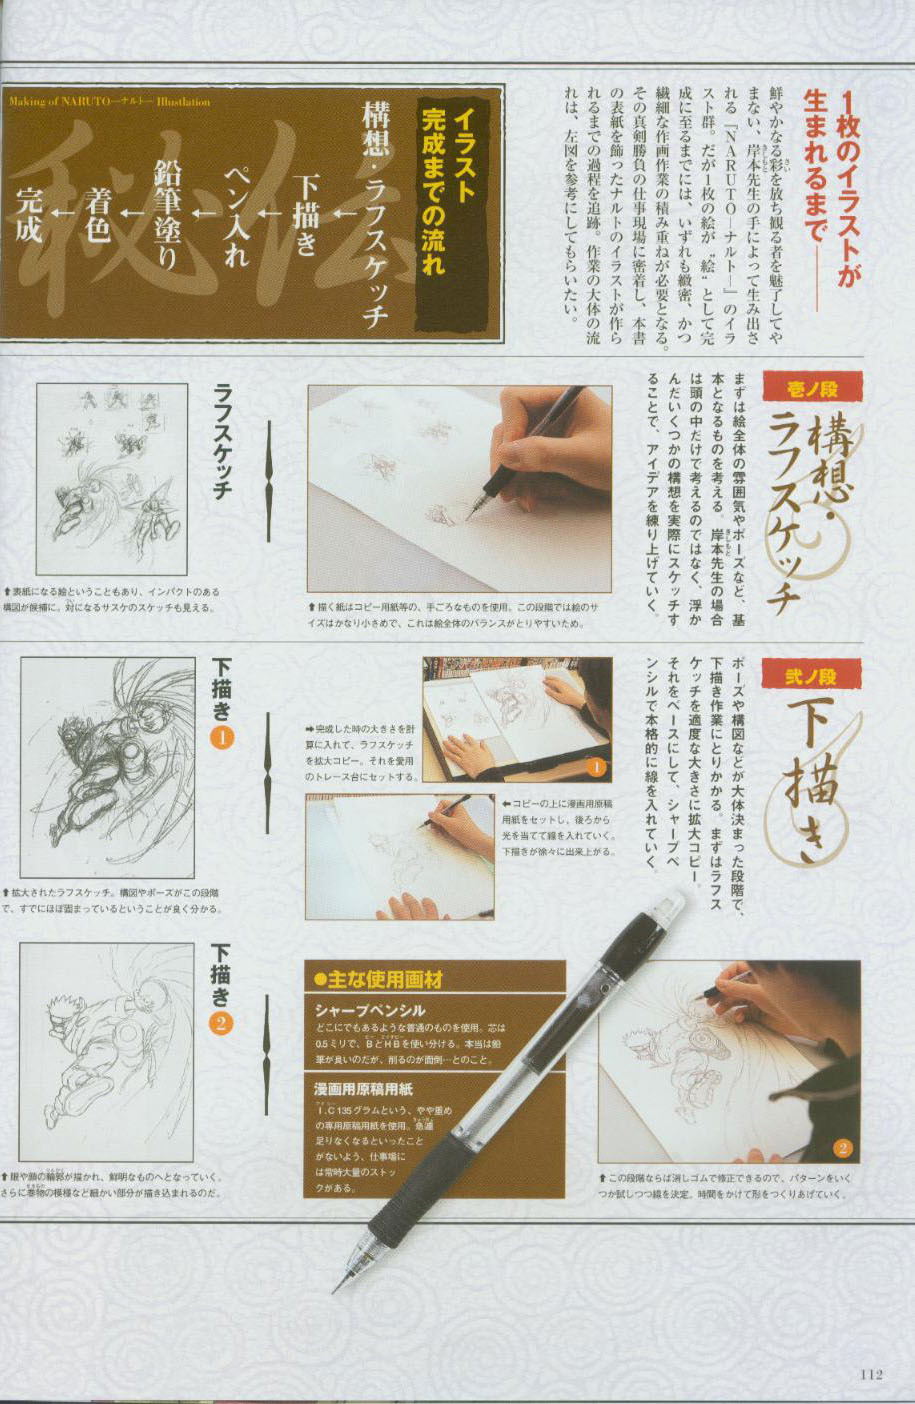 1枚のイラストが
生まれるまで――
鮮やかなる彩を放ち観る者を魅了してや
まない、岸本先生の手によって生み出さ
れる『NARUTO―ナルト―』のイラ
スト群。だが1枚の絵が〝絵〟として完
成に至るまでには、いずれも緻密、かつ
繊細な作画作業の積み重ねが必要となる。
その真剣勝負の仕事現場に密着し、本書
の表紙を飾ったナルトのイラストが作ら
れるまでの過程を追跡。作業の大体の流
れは、左図を参考にしてもらいたい。
Making of NARUTO―ナルト― Illustlation
秘伝
イラスト
完成までの流れ
構想・ラフスケッチ
↓
下描き
↓
ペン入れ
↓
鉛筆塗り
↓
着色
↓
完成
壱ノ段
構想・
ラフスケッチ
まずは絵全体の雰囲気やポーズなど、基
本となるものを考える。岸本先生の場合
は頭の中だけで考えるのではなく、浮か
んだいくつかの構想を実際にスケッチす
ることで、アイデアを練り上げていく。
⬆描く紙はコピー用紙等の、手ごろなものを使用。この段階では絵のサ
イズはかなり小さめで、これは絵全体のバランスがとりやすいため。
ラフスケッチ
⬆表紙になる絵ということもあり、インパクトのある
構図が候補に。対になるサスケのスケッチも見える。
弐ノ段
下描き
ポーズや構図などが大体決まった段階で、
下描き作業にとりかかる。まずはラフス
ケッチを適度な大きさに拡大コピー。
それをベースにして、シャープペ
ンシルで本格的に線を入れていく。
1
➡完成した時の大きさを計
算に入れて、ラフスケッチ
を拡大コピー。それを愛用
のトレース台にセットする。
⬅コピーの上に漫画用原稿
用紙をセットし、後ろから
光を当てて線を入れていく。
下描きが徐々に出来上がる。
下描き1
⬆拡大されたラフスケッチ。構図やポーズがこの段階
で、すでにほぼ固まっているということが良く分かる。
2
⬆この段階ならば消しゴムで修正できるので、パターンをいく
つか試しつつ線を決定。時間をかけて形をつくりあげていく。
●主な使用画材
シャープペンシル
どこにでもあるような普通のものを使用。芯は
0.5ミリで、BとHBを使い分ける。本当は鉛
筆が良いのだが、削るのが面倒…とのこと。
漫画用原稿用紙
I.C 135グラムという、やや重め
の専用原稿用紙を使用。急遽
足りなくなるといったこと
がないよう、仕事場に
は常時大量のストッ
クがある。
下描き2
⬆眼や顔の輪郭が描かれ、鮮明なものへとなっていく。
さらに巻物の模様など細かい部分が描き込まれるのだ。
112